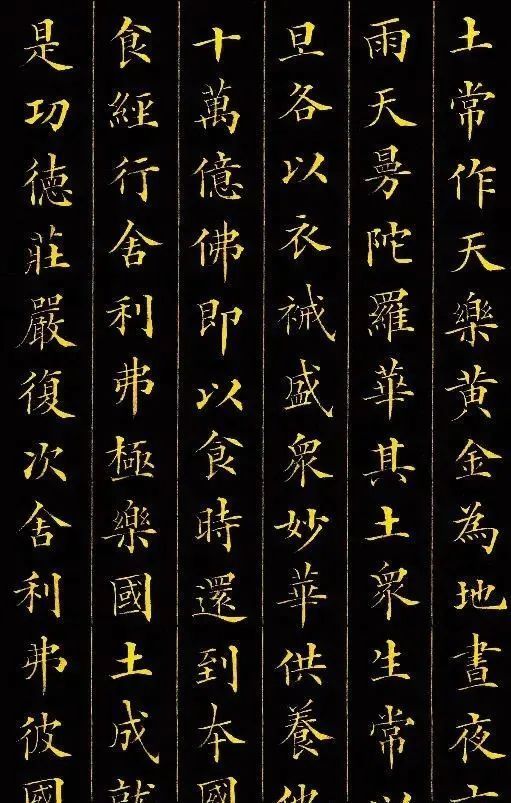 土常作天樂黄金為地晝夜
雨天曼陀羅華其土眾生常以
旦各以衣祴盛眾妙華供養他
十萬億佛即以食時還到本國
食經行舍利弗極樂國土成就
是功德莊嚴復次舍利弗彼國